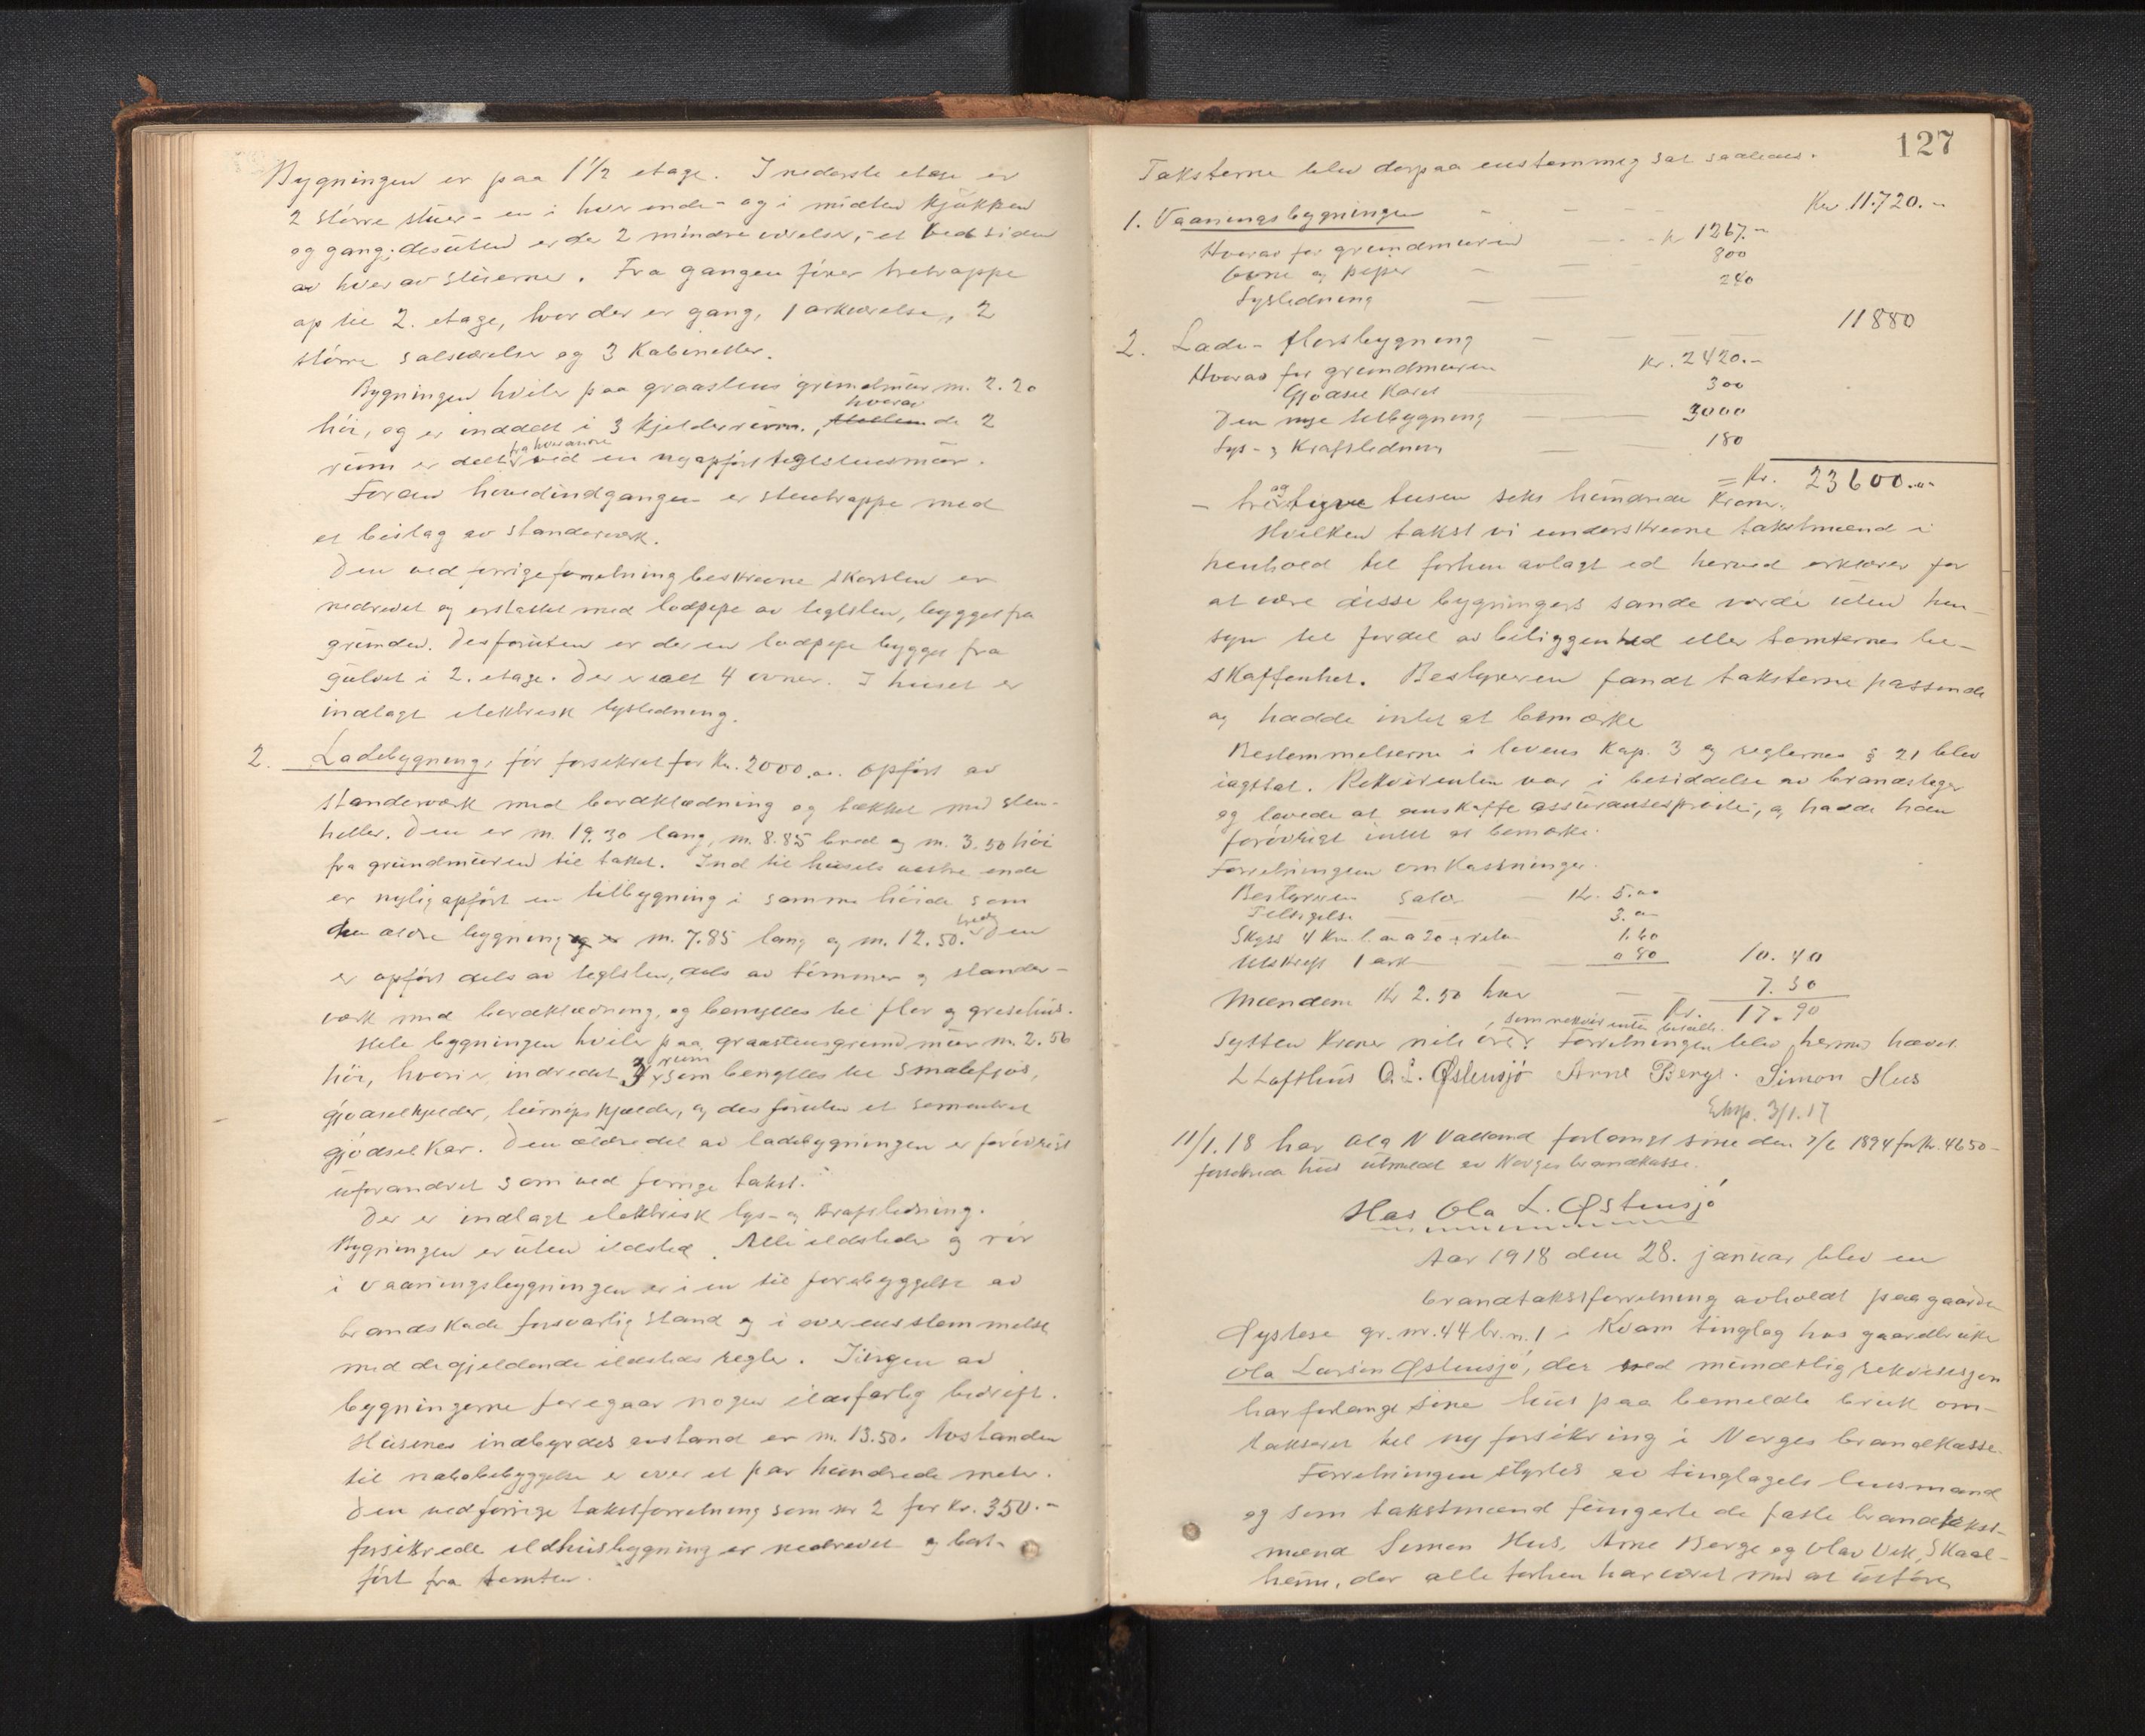 Bygningen er paa 1 1/2 etage. I nederste etage er
2 större stuer - en i hver ende - og i midten kjökken
og gang; desuten er der 2 mindre værelser, et ved siden
av hver av stuerne. Fra gangen förer tretrappe
op til 2. etage, hvor der er gang, 1 arkværelse, 2
större salsværelser og 3 kabinetter.
Bygningen hviler paa graastens grundmur m. 2.20
höi, og er inddelt i 3 kjelderrum, hvorav de 2
rum er delt fra hverandre ved en nyopfört teglstensmur.
Foran hovedindgangen er stentrappe med
et bislag av standerverk.
Den ved forrige forretning beskrevne skorsten er
nedrevet og erstattet med lodpipe av teglsten, bygget fra
grunden. Desforuten er der en lodpipe bygget fra
gulvet i 2. etage. Der er ialt 4 ovner. I huset er
indlagt elektrisk lysledning.
2. Ladebygning, för forsikret for Kr. 2000.00. Opfört av
standerværk med bordklædning og tækket med sten-
heller. Den er m. 19.30 lang, m. 8.85 bred og m. 3.50 höi
fra grundmuren til taket. Ind til husets vestre ende
er nylig opfört en tilbygning i samme höide som
den ældre bygning, m. 7.85 lang og m. 12.50 bred. Den
er opfört dels av teglsten, dels av tömmer og stander-
værk med bordklædning, og benyttes til flor og grisehus.
Hele bygningen hviler paa graastensgrundmur m. 2.50
höi, hvori er indredet 3 rum som benyttes til smalefjös,
gjödselkjelder, turnipskjælder, og desforuten et sementert
gjödselkar. Den ældre del av ladebygningen er forövrigt
uforandret som ved forrige takst.
Der er indlagt elektrisk lys- og kraftledning.
Bygningen er uten ildsted. Alle ildsteder og rör
i vaaningsbygningen er i en til forebyggelse av
brandskade forsvarlig stand og i overensstemmelse
med de gjeldende ildsteds regler. Ingen av
bygningerne foregaar nogen ildsfarlig bedrift.
Husenes indbyrdes avstand er m. 13.50. Avstanden
til nabobebyggelse er over et par hundrede meter.
Den ved forrige takstforretning som nr 2 for kr. 350.-
forsikrede ildhusbygning er nedrevet og bort-
fört fra tomten.
127
Taksterne blev derpaa enstemmig sat saaledes.
1. Vaaningsbygningen - - - Kr. 11.720.-
Hvorav for grundmuren - - kr 1267.-
Ovne og piper - - 800
Lysledning - 240
2. Lade- florsbygning - - - 11880
Hvorav for grundmuren kr. 2420.-
Gjödsel karet 300
Den nye tilbygning - 3000
Lys- og Kraftledning - 180
= Kr. 23600.-
- tre og tyve tusen seks hundrede Kroner.
Hvilken takst vi underskrevne takstmænd i
henhold til forhen avlagt ed herved erklærer for
at være disse bygningers sande værdi uten hen-
syn til fordel av beliggenhed eller tomternes be-
skaffenhet. Bestyreren fandt taksterne passende
og hadde intet at bemærke
Bestemmelserne i lovens Kap. 3 og reglernes § 21 blev
iagttat. Rekvirenten var i besiddelse av brandstiger
og lovede at anskaffe assuransesprøite, og hadde han
forövrigt intet at bemærke.
Forretningen omkostninger.
Bestyreren salær - Kr. 5.00
Tilsigelse - 3.00
Skyss 4 Km. a 20 + retur 1.60
Utskrift 1 ark - - 0 80 10.40
Mændene Kr 2.50 hver - - 7.50
Kr. 17.90
Sytten Kroner niti öre, som rekvirenten betalte. Forretningen blev hermed hævet.
L Lofthus O. L. Østensjö Arne Berge. Simon Hus
Eksp. 3/1.17
11/1.18 har Olq N Valland forlangt sine den 7/6 1894 for kr. 4650-
forsikrede hus utmeldt av Norges brandkasse.
Hos Ola L. Østensjö
Aar 1918 den 28. januar blev en
brandtakstforretning avholdt paa gaarden
Öystese gr. nr. 44 br. n. 1 i Kvam tinglag hos gaardbruker
Ola Larsen Östensjö, der ved mundtlig rekvisisjon
har forlangt sine hus paa bemeldte bruk om-
taksert til ny forsikring i Norges brandkasse.
Forretningen styrtes av tinglagets lensmand
og som takstmænd fungerte de faste brandtakst-
mænd Simon Hus, Arne Berge og Olav Vik, Skaal-
heim, der alle forhen har været med at utföre